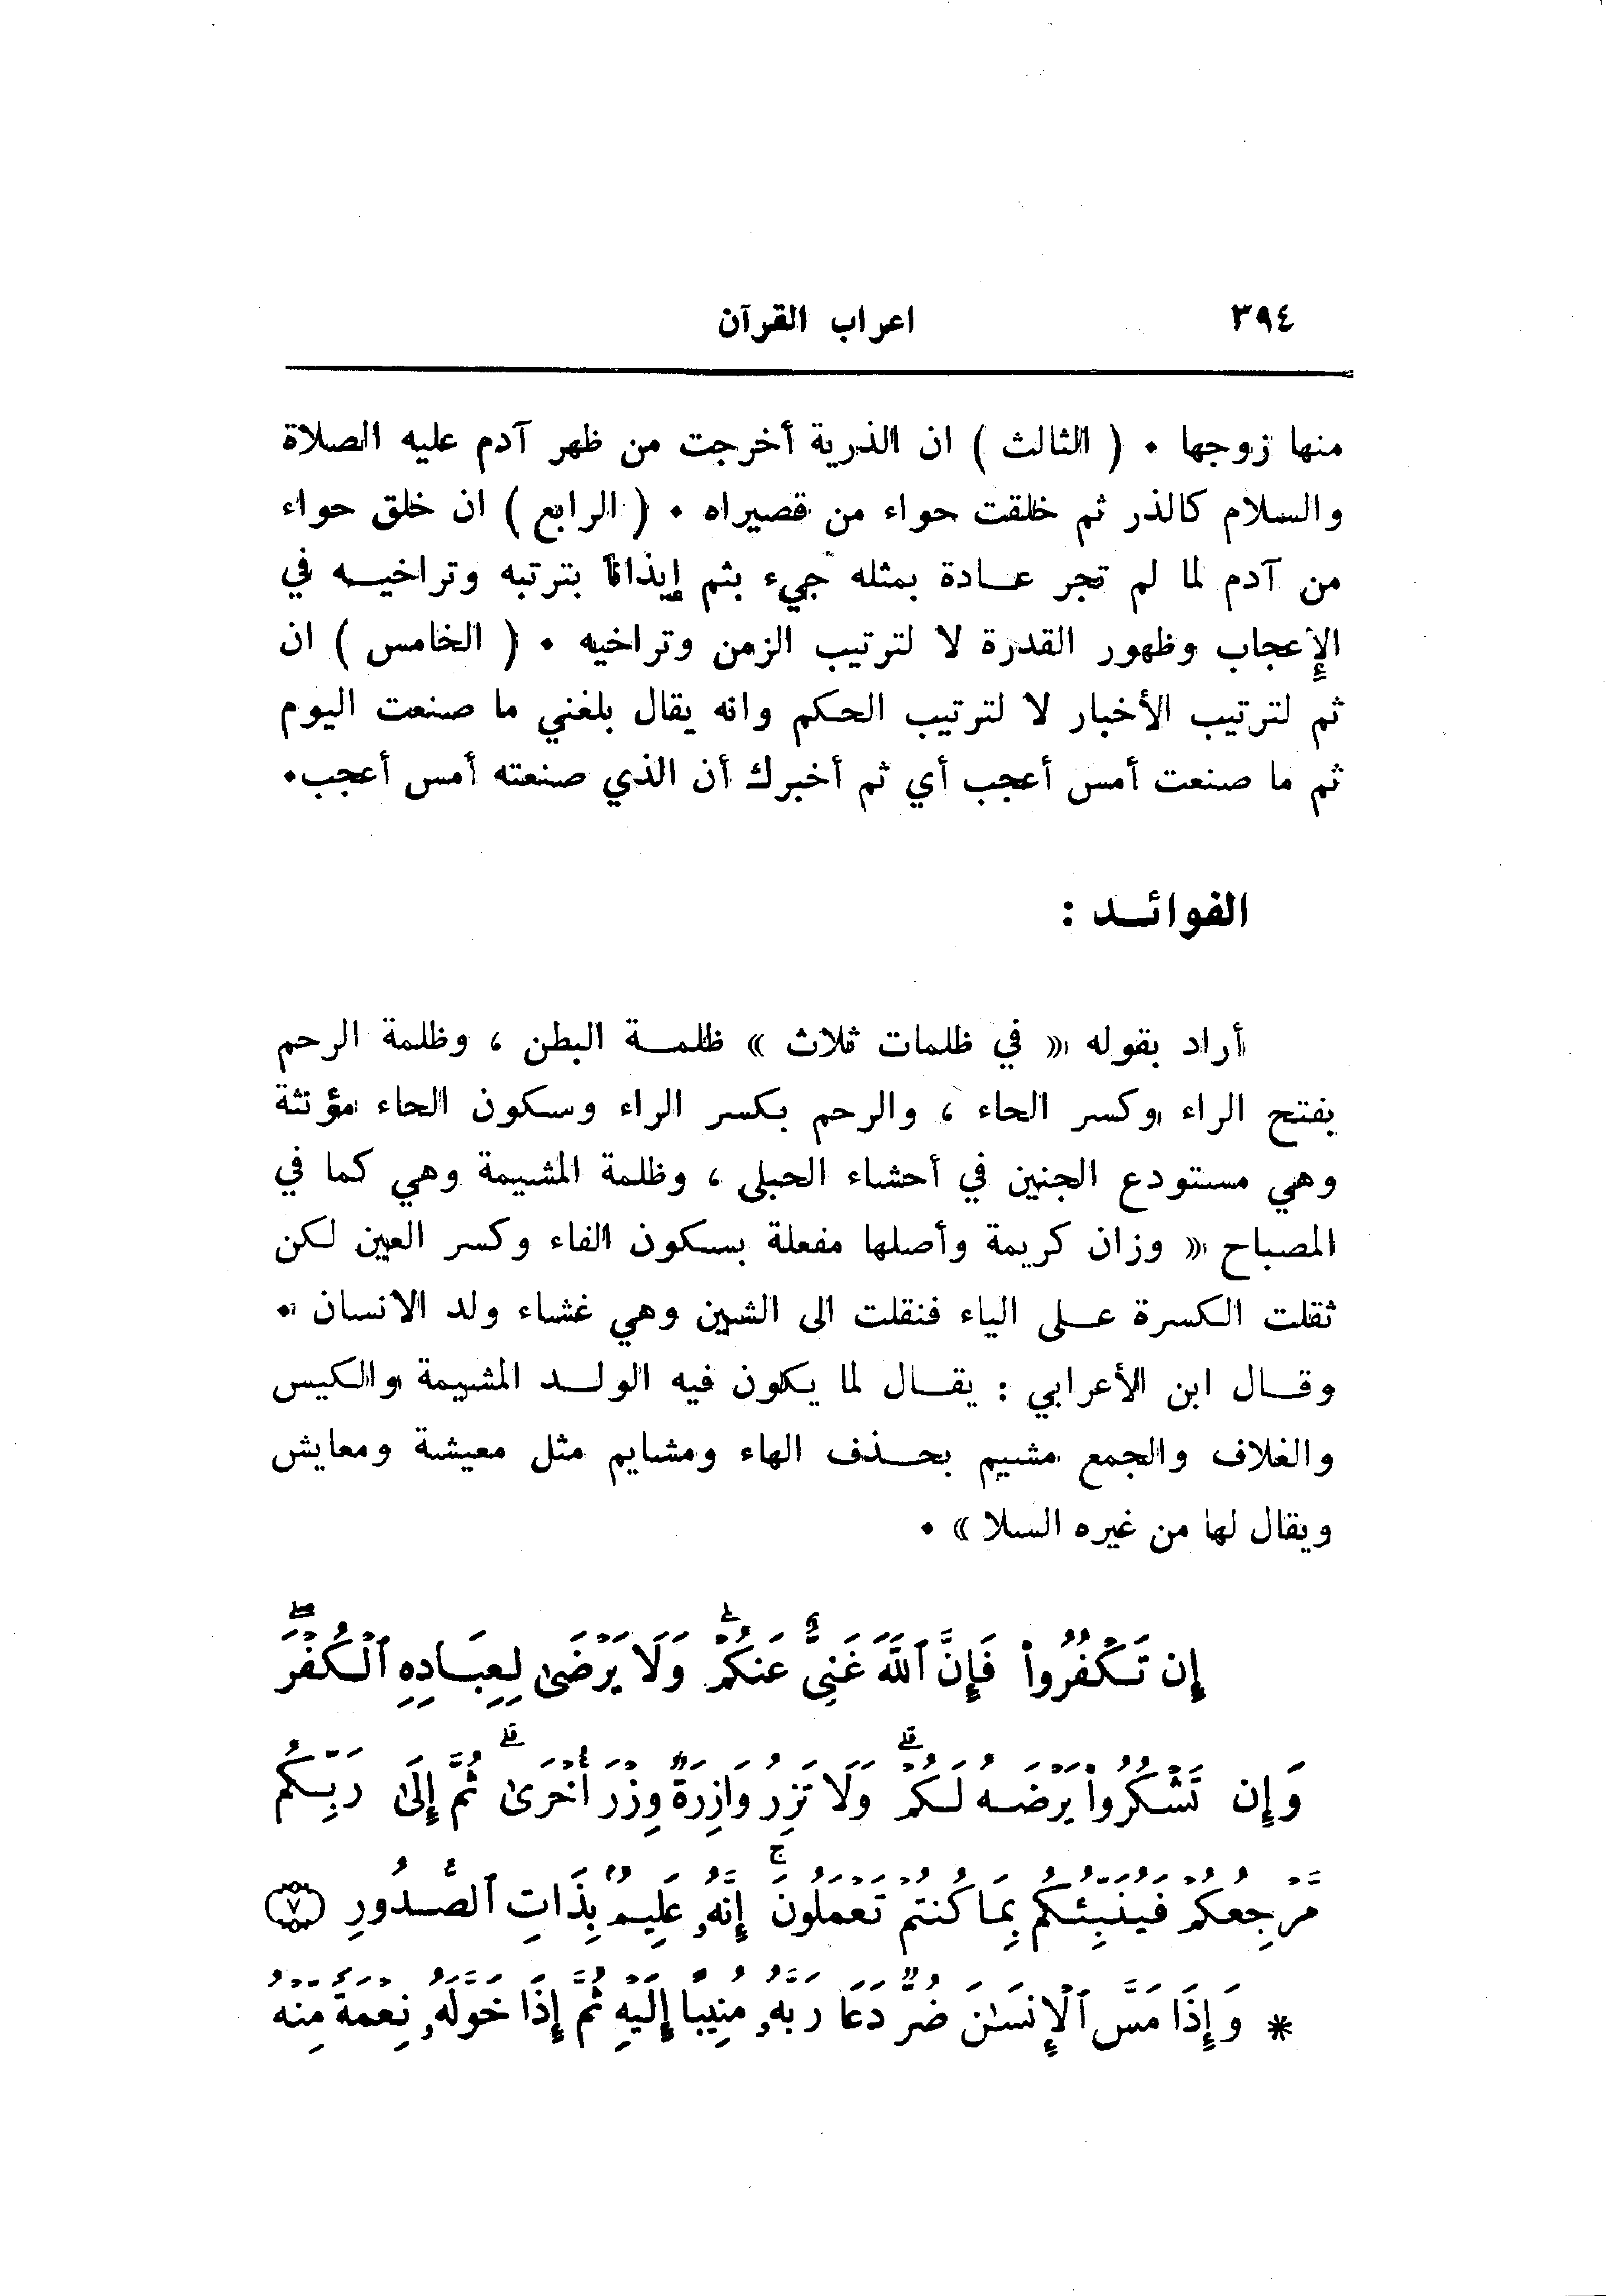 ٣٩٤ اعراب القرآن
منها زوجها . ( الثالث ) ان الذرية أخرجت من ظهر آدم عليه الصلاة
والسلام كالذر ثم خلقت حواء من قصيراه . ( الرابع ) ان خلق حواء
من آدم لما لم تجر عادة بمثله جيء بثم إيذاناً بترتبه وتراخيه في
الإعجاب وظهور القدرة لا لترتيب الزمن وتراخيه . ( الخامس ) ان
ثم لترتيب الأخبار لا لترتيب الحكم وانه يقال بلغني ما صنعت اليوم
ثم ما صنعت أمس أعجب أي ثم أخبرك أن الذي صنعته أمس أعجب.
الفوائد :
أراد بقوله « في ظلمات ثلاث » ظلمة البطن ، وظلمة الرحم
بفتح الراء وكسر الحاء ، والرحم بكسر الراء وسكون الحاء مؤنثة
وهي مستودع الجنين في أحشاء الحبلى ، وظلمة المشيمة وهي كما في
المصباح « وزان كريمة وأصلها مفعلة بسكون الفاء وكسر العين لكن
ثقلت الكسرة على الياء فنقلت الى الشين وهي غشاء ولد الانسان .
وقال ابن الأعرابي : يقال لما يكون فيه الولد المشيمة والكيس
والغلاف والجمع مشيم بحذف الهاء ومشايم مثل معيشة ومعايش
ويقال لها من غيره السلا » .
إِن تَكْفُرُواْ فَإِنَّ ٱللَّهَ غَنِىٌّ عَنكُمْ ۖ وَلَا يَرْضَىٰ لِعِبَادِهِ ٱلْكُفْرَ ۖ
وَإِن تَشْكُرُواْ يَرْضَهُ لَكُمْ ۗ وَلَا تَزِرُ وَازِرَةٌ وِزْرَ أُخْرَىٰ ۗ ثُمَّ إِلَىٰ رَبِّكُم
مَّرْجِعُكُمْ فَيُنَبِّئُكُم بِمَا كُنتُمْ تَعْمَلُونَ ۚ إِنَّهُۥ عَلِيمُۢ بِذَاتِ ٱلصُّدُورِ ﴿٧﴾
* وَإِذَا مَسَّ ٱلْإِنسَٰنَ ضُرٌّ دَعَا رَبَّهُۥ مُنِيبًا إِلَيْهِ ثُمَّ إِذَا خَوَّلَهُۥ نِعْمَةً مِّنْهُ